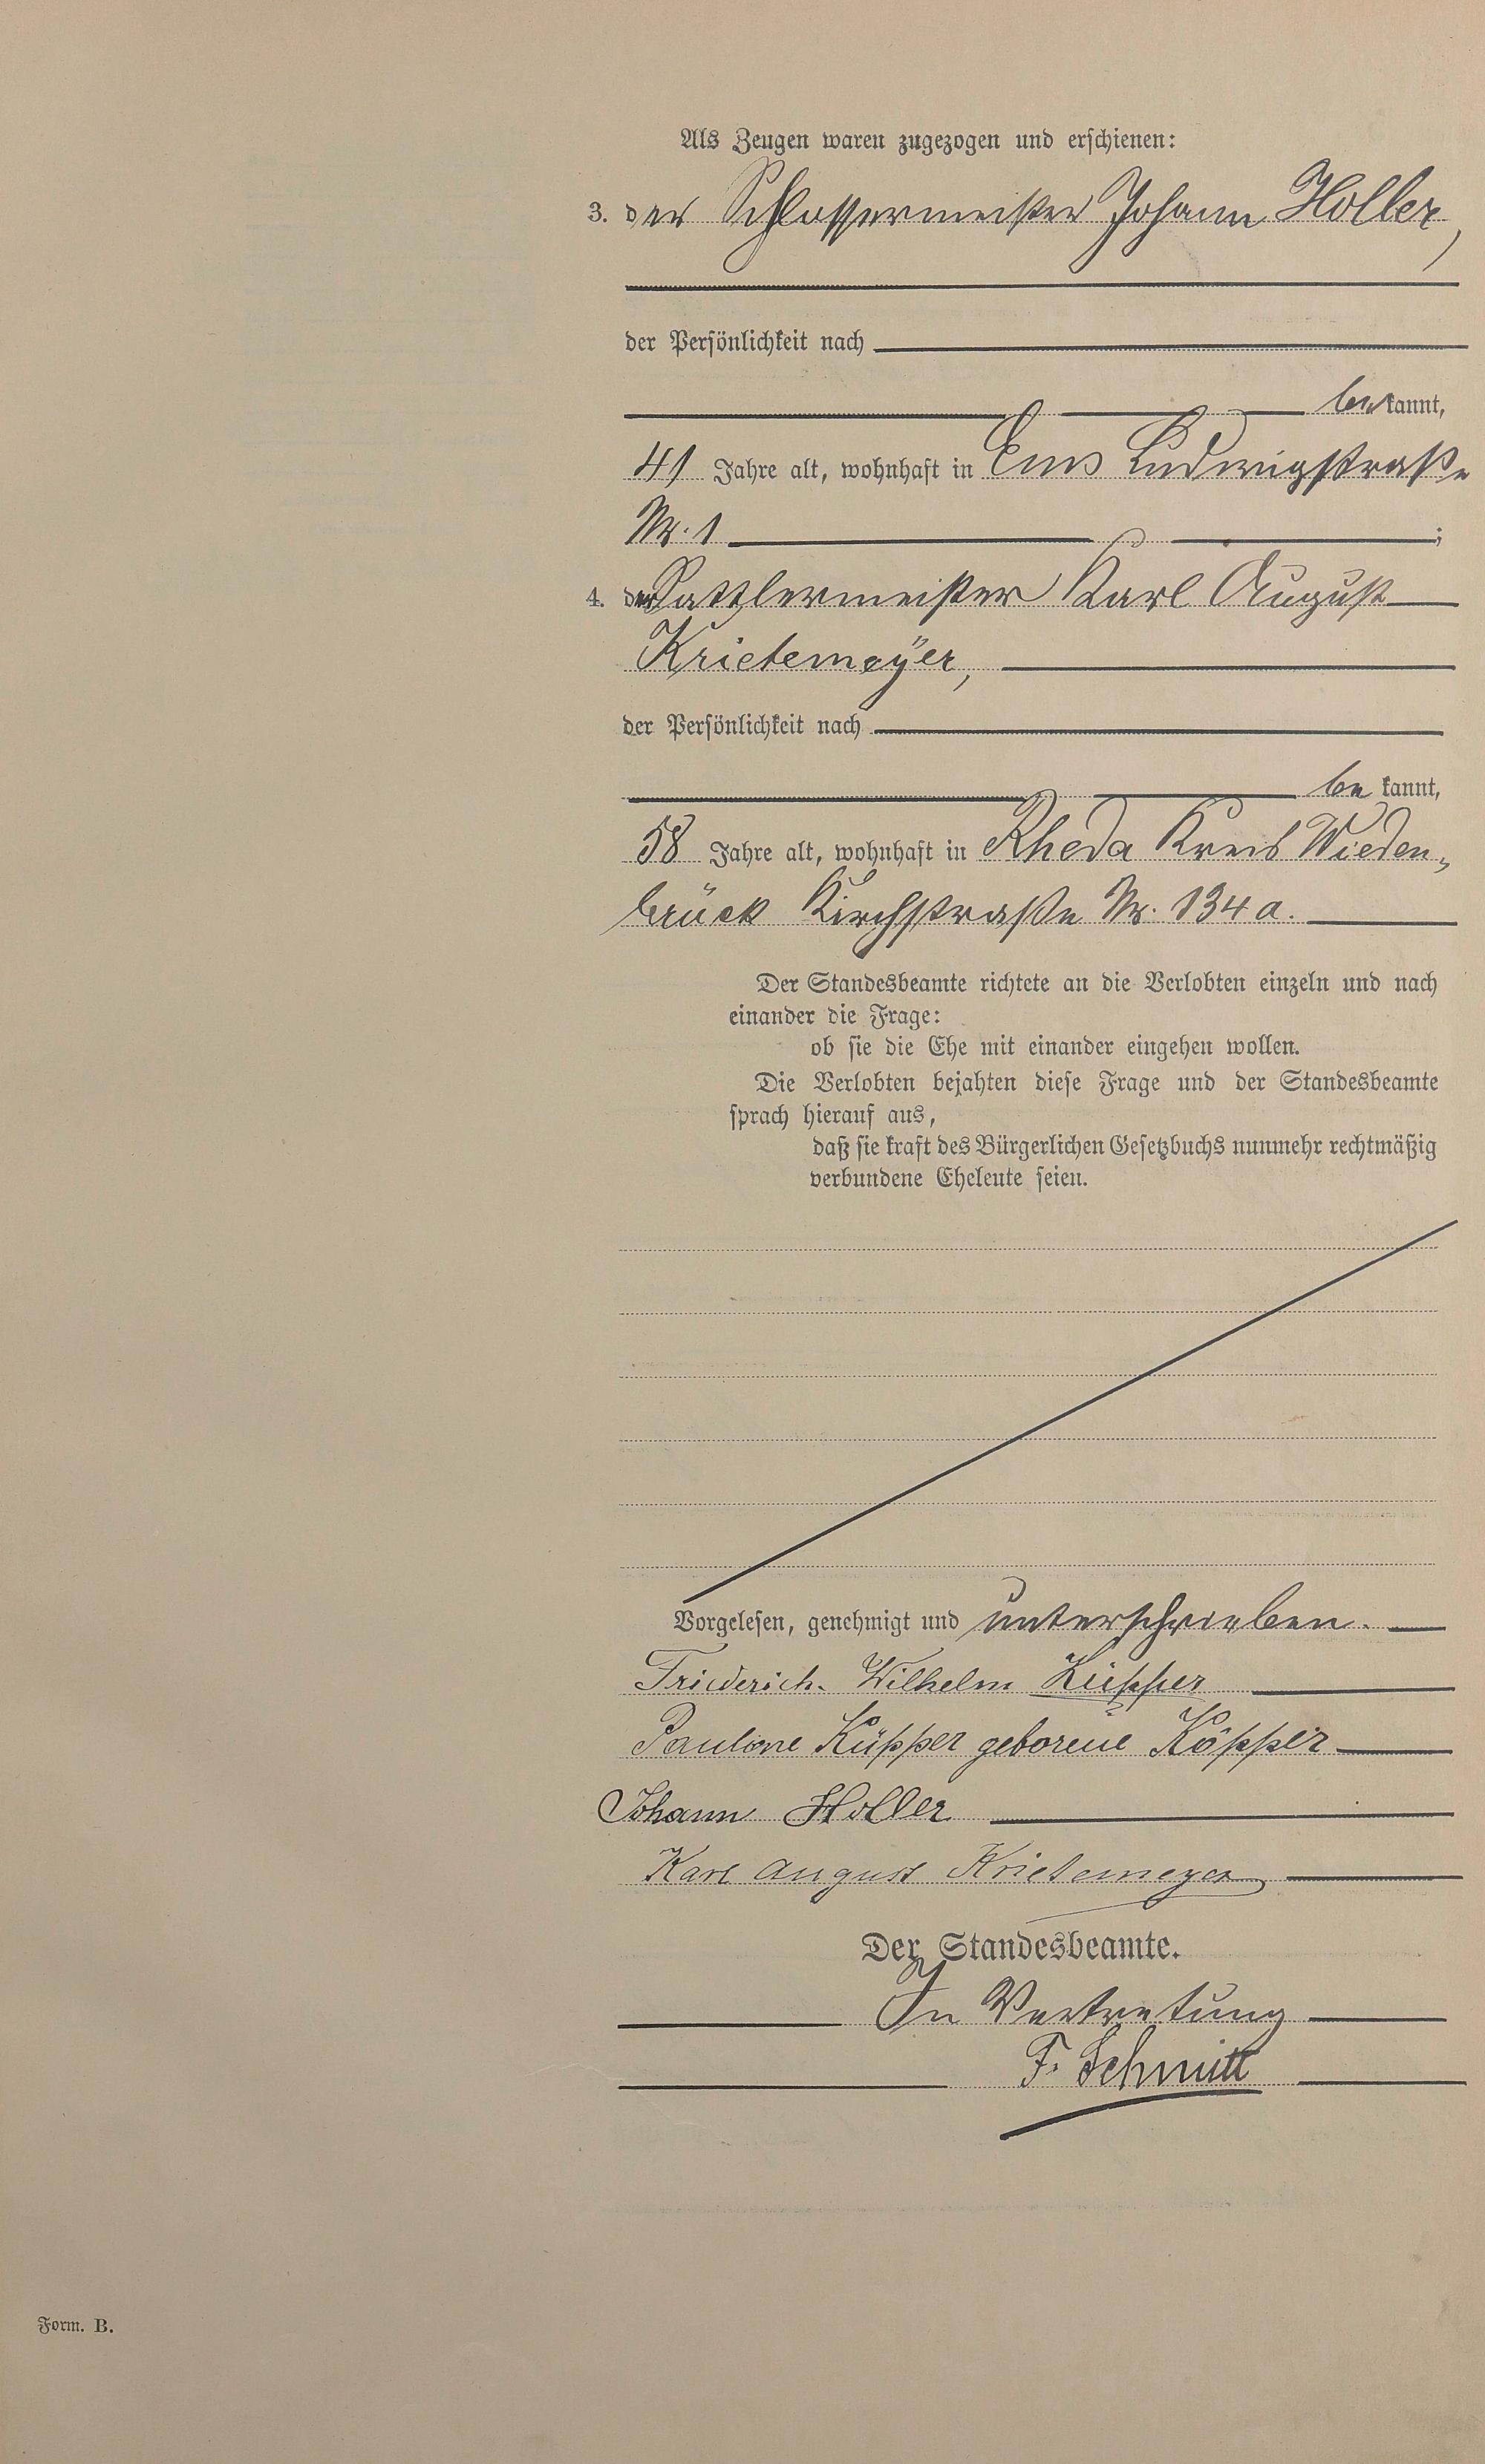 Als Zeugen waren zugezogen und erschienen:
3. der Schlossermeister Johann Holler,
der Persönlichkeit nach
bekannt,
41 Jahre alt, wohnhaft in Ems Ludwigstraße
Nr. 1 ;
4. der Sattlermeister Karl August
Krietemeÿer,
der Persönlichkeit nach
be kannt,
58 Jahre alt, wohnhaft in Rheda Kreis Wieden-
brück Kirchstraße Nr. 134a.
Der Standesbeamte richtete an die Verlobten einzeln und nach
einander die Frage:
ob sie die Ehe mit einander eingehen wollen.
Die Verlobten bejahten diese Frage und der Standesbeamte
sprach hierauf aus,
daß sie kraft des Bürgerlichen Gesetzbuchs nunmehr rechtmäßig
verbundene Eheleute seien.
Vorgelesen, genehmigt und unterschrieben.
Friederich Wilhelm Küpper
Pauline Küpper geborene Köpper
Johann Holler
Karl August Krietemeyer
Der Standesbeamte.
In Vertretung
F. Schmitt
Form. B.